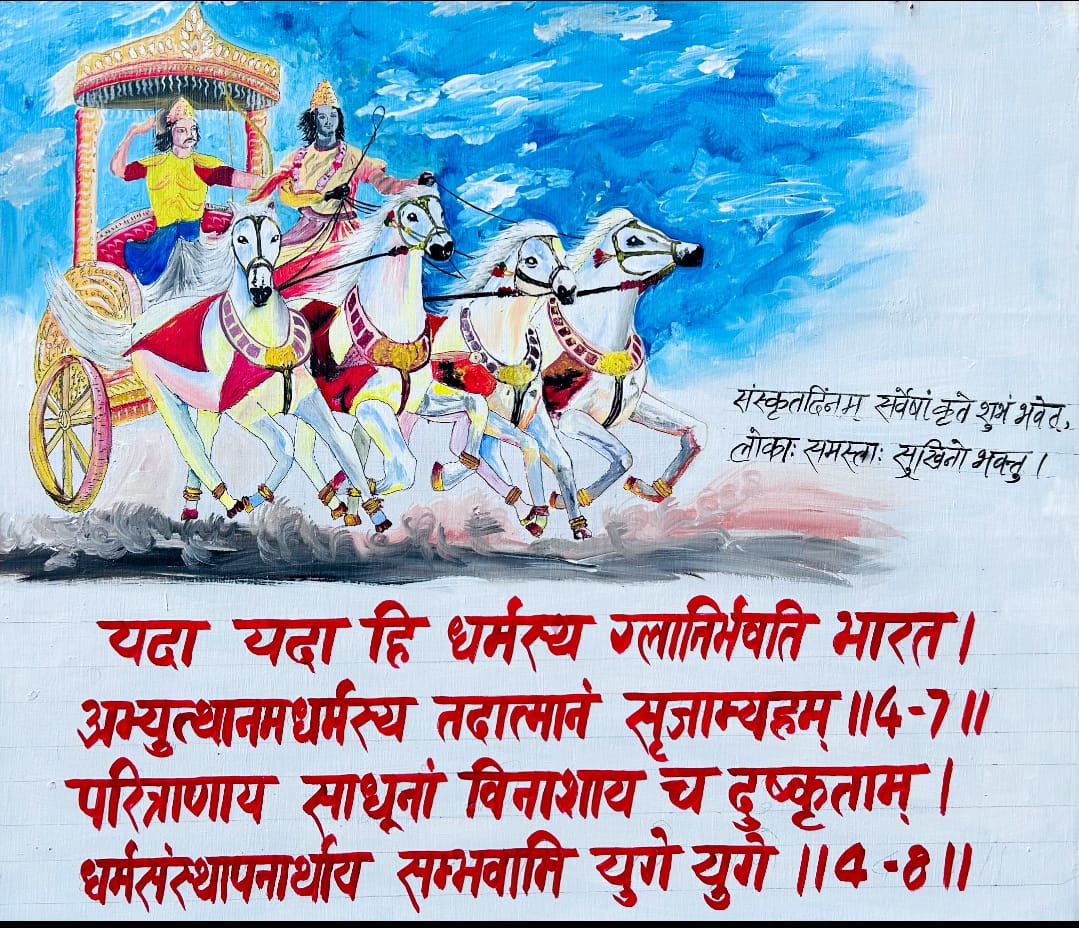 संस्कृतदिनम् सर्वेषां कृते शुभं भवेत्,
लोकाः समस्ताः सुखिनो भवन्तु ।
यदा यदा हि धर्मस्य ग्लानिर्भवति भारत ।
अभ्युत्थानमधर्मस्य तदात्मानं सृजाम्यहम् ॥4-7॥
परित्राणाय साधूनां विनाशाय च दुष्कृताम् ।
धर्मसंस्थापनार्थाय सम्भवामि युगे युगे ॥4-8॥